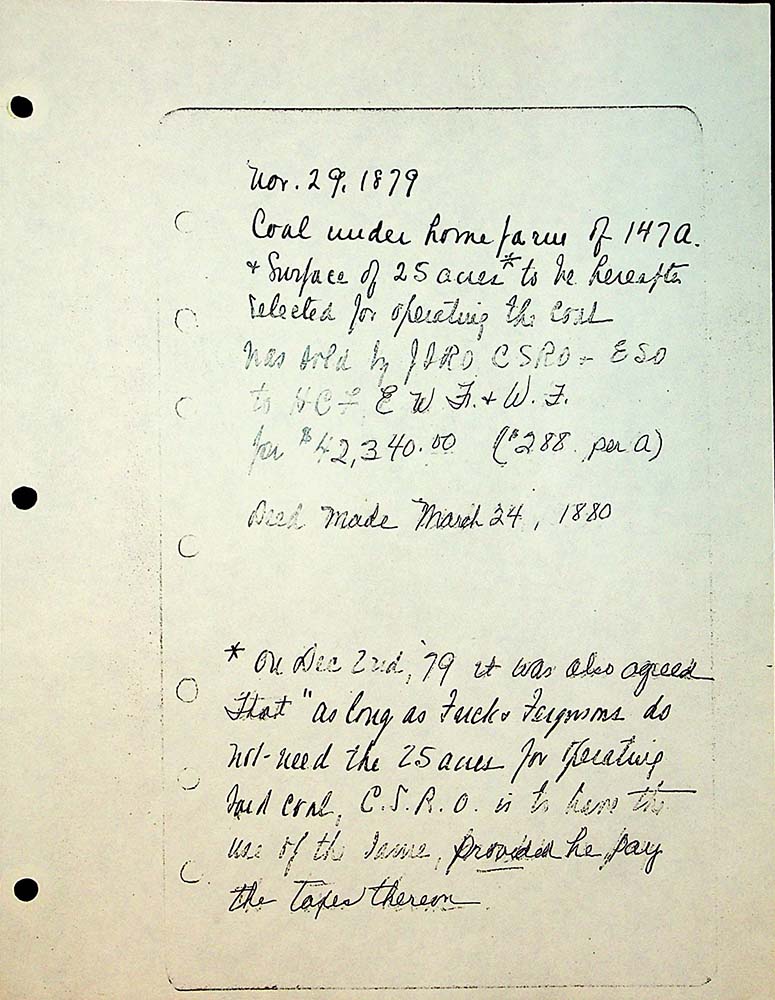 Nov. 29. 1879
Coal under home farm of 147 A.
& Surface of 25 acres* to be hereafter
selected for operating the coal
was sold by J SRO CSRO & ESO
to HCF E W F. & W. F.
for $42,340.00 ($288 per A)
Deed made March 24, 1880
* On Dec 2nd, '79 it was also agreed
that "as long as Frick & Fergusons do
not need the 25 acres for operating
said coal, C.S.R.O. is to have the
use of the same, provided he pay
the taxes thereon